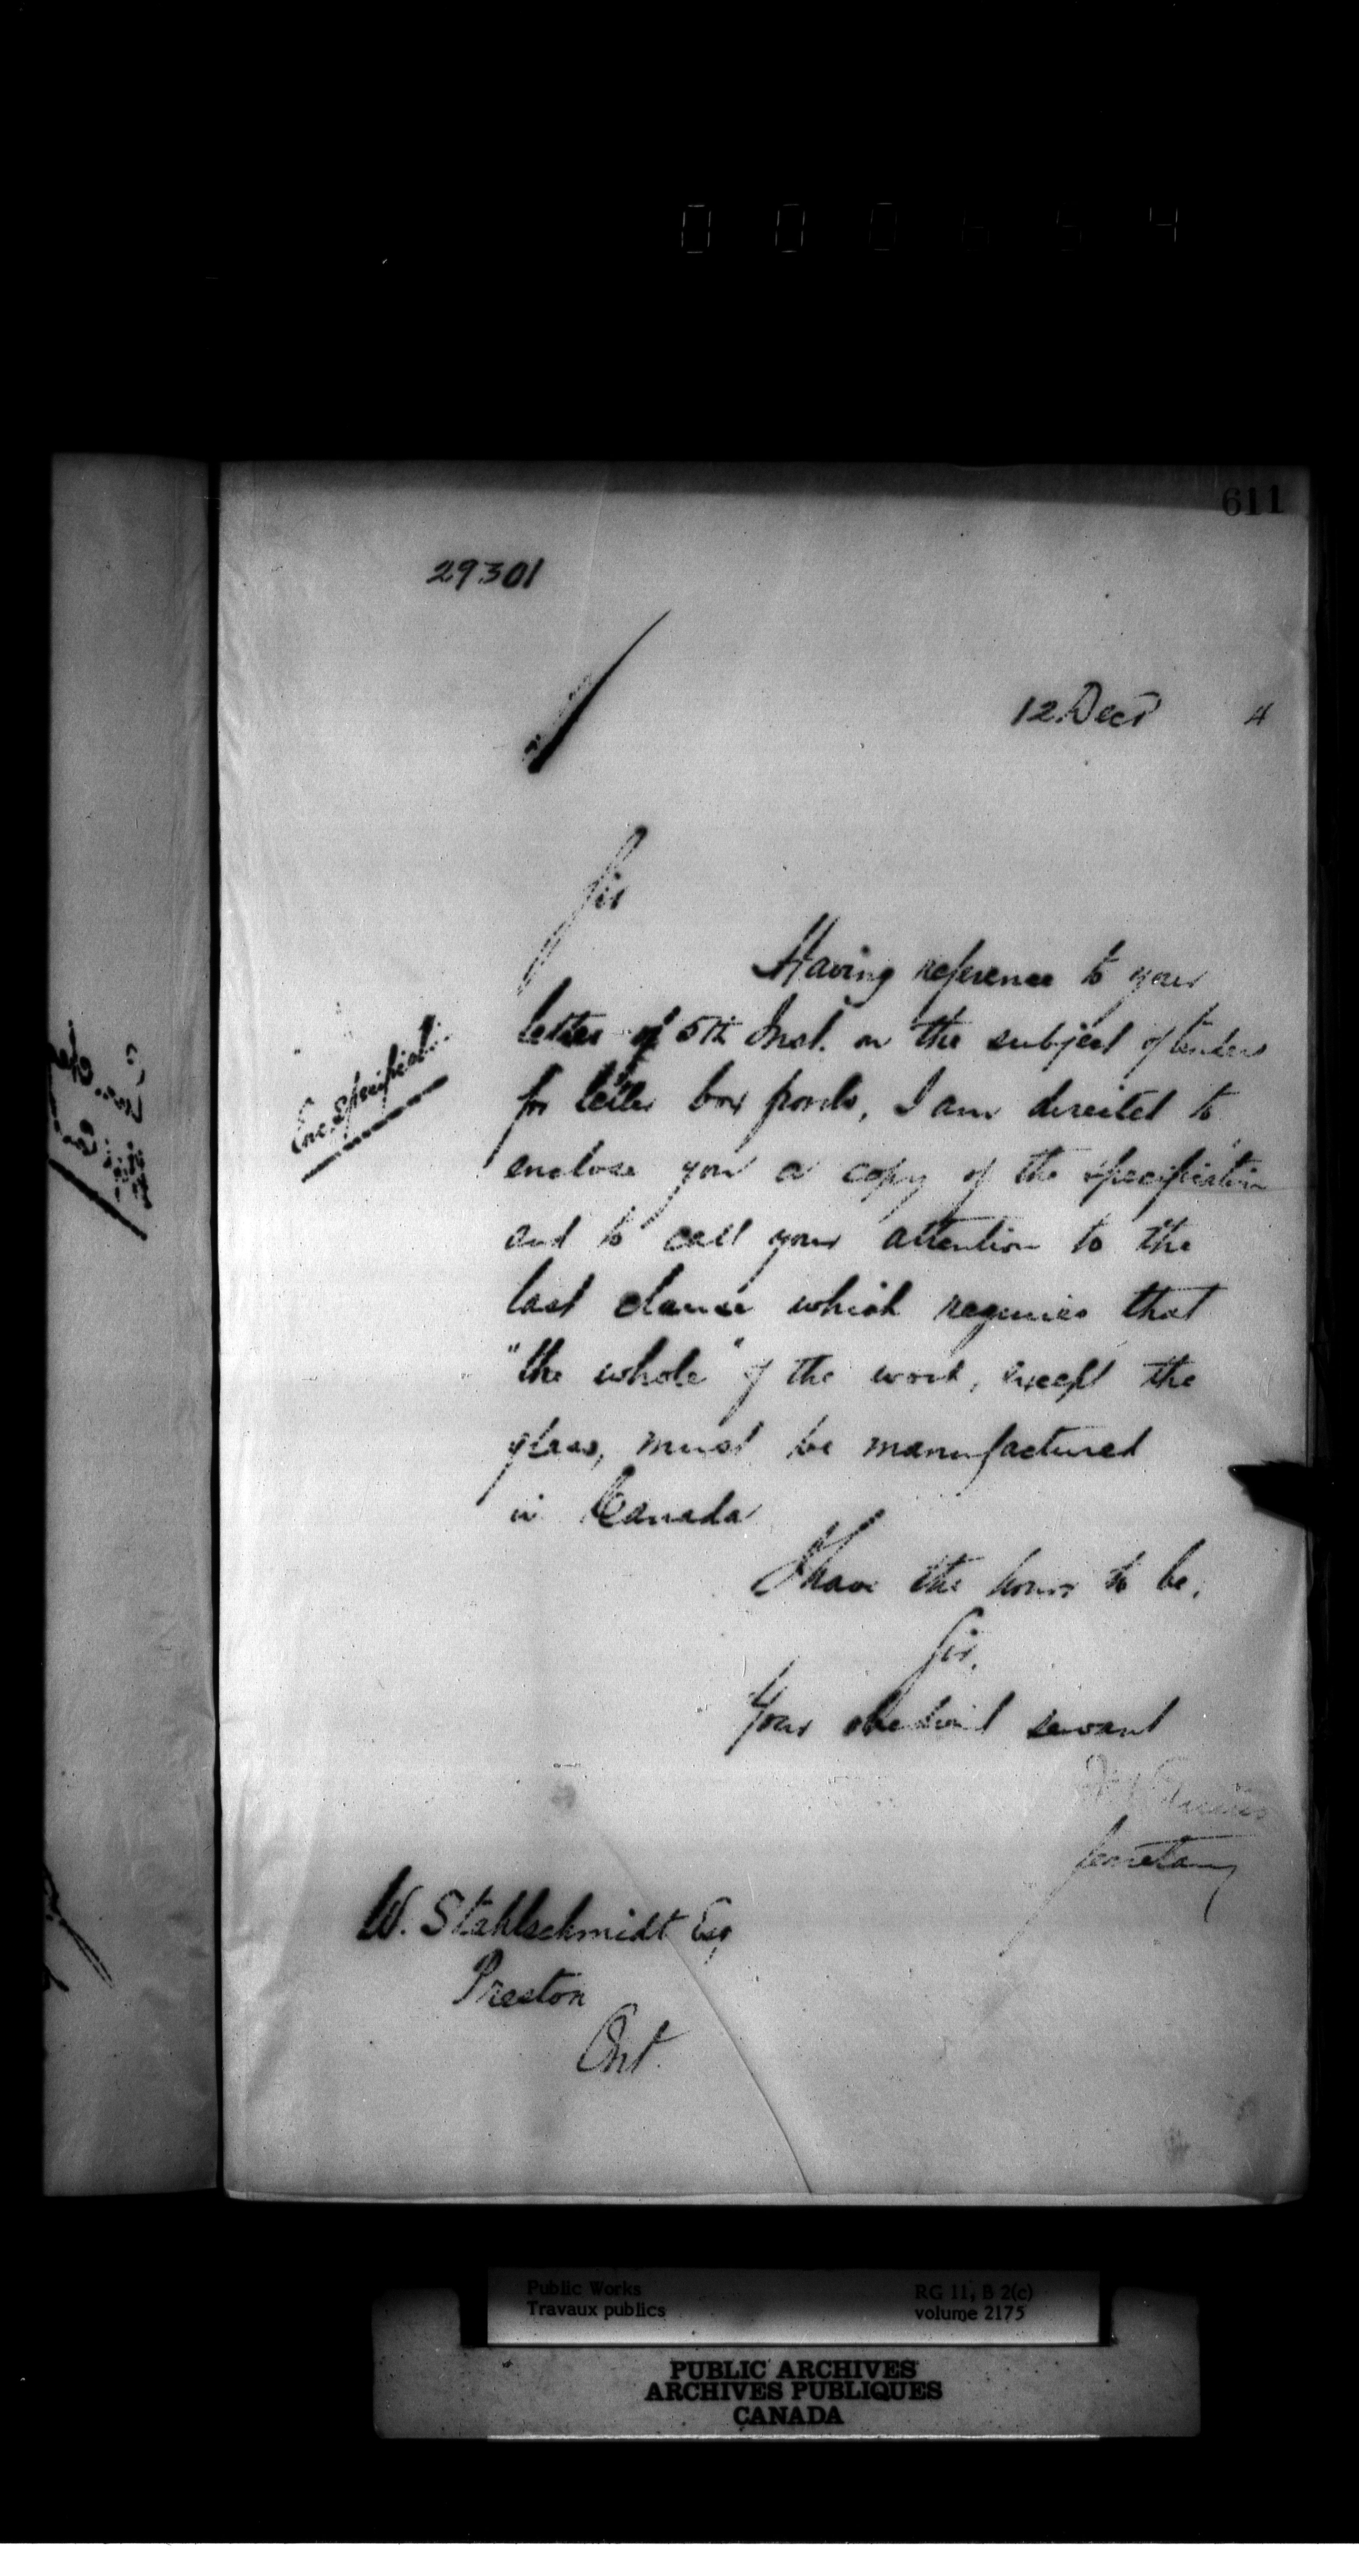 000654
611
29301
12 Decr 4
Sir
Having reference to your
letter of 5th Inst. on the subject of tenders
for letter box fronts, I am directed to
Enc. Specificat.
enclose you a copy of the specification
and to call your attention to the
last clause which requires that
"the whole" of the work, except the
glass, must be manufactured
in Canada
I have the honor to be,
Sir,
Your obedient servant
Secretary
W. Stahlschmidt Esq
Preston
Ont.
Public Works
Travaux publics
RG 11, B 2(c)
volume 2175
PUBLIC ARCHIVES
ARCHIVES PUBLIQUES
CANADA